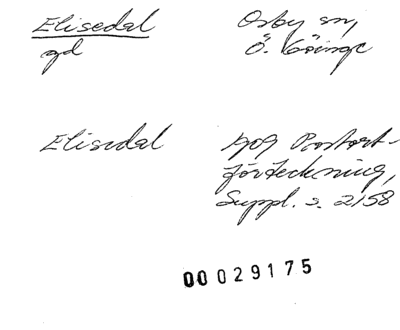 Elisedal Osby sn,
gd Ö. Göinge
Elisedal 1909 Postort-
förteckning,
Suppl. s. 2158
00029175